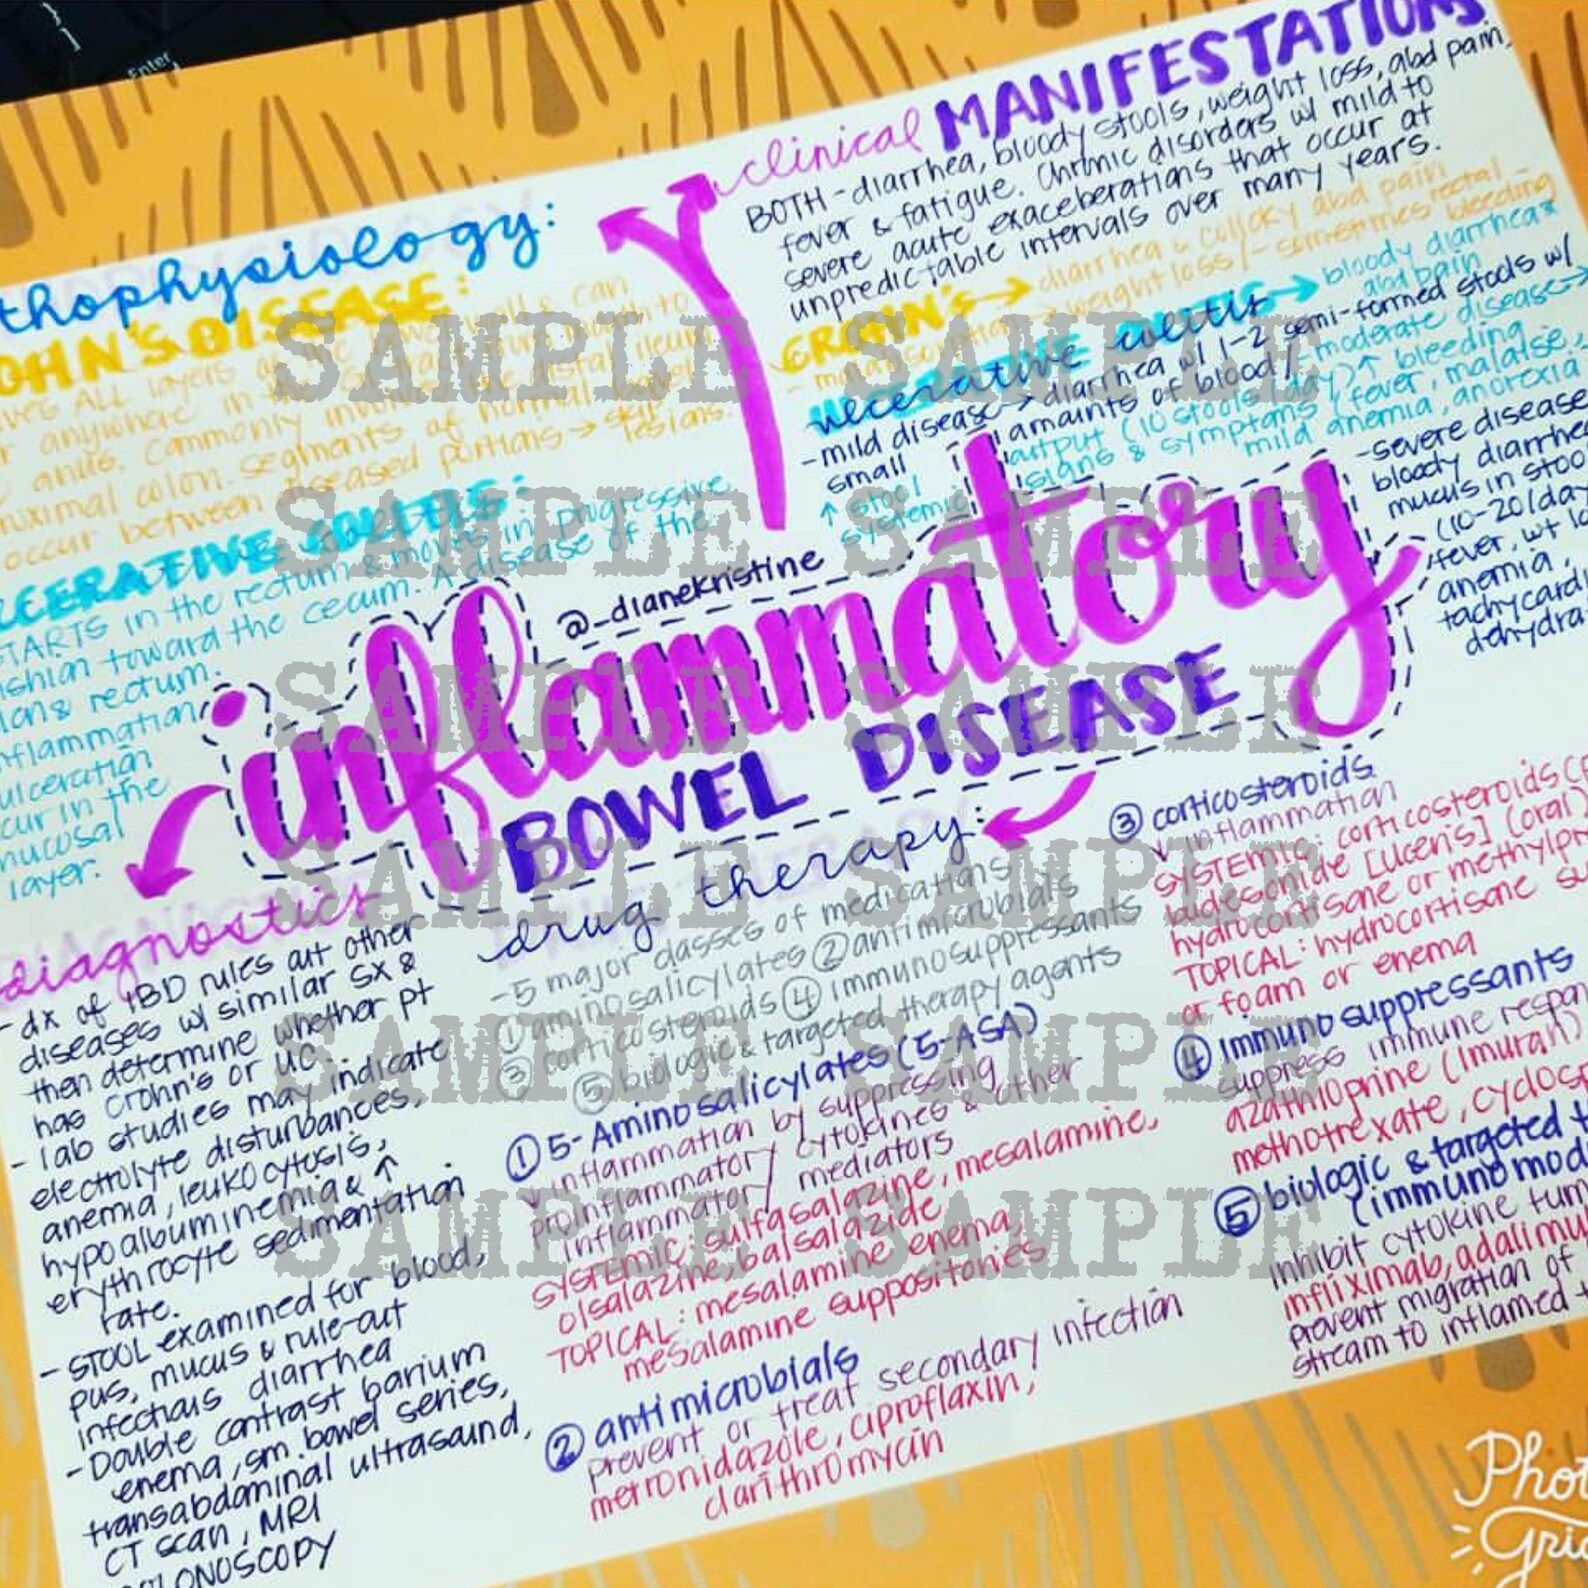 Enter
clinical MANIFESTATIONS
BOTH - diarrhea, bloody stools, weight loss, abd pain,
fever & fatigue. Chronic disorders w/ mild to
severe acute exacerbations that occur at
unpredictable intervals over many years.
CROHN'S → diarrhea & collicky abd pain
- malabsorption → weight loss / - sometimes rectal
bleeding
ulcerative colitis → bloody diarrhea &
abd pain
- mild disease → diarrhea w/ 1-2 semi-formed stools w/
small amounts of blood / - moderate disease →
↑ stool output (10 stools/day) ↑ bleeding
systemic signs & symptoms (fever, malaise,
mild anemia, anorexia
- severe disease
bloody diarrhea
mucus in stool
(10-20/day
fever, wt lo
anemia,
tachycardi
dehydra
thophysiology:
OHN'S DISEASE:
ves ALL layers of the bowel wall & can
r anywhere in the GI tract from mouth to
anus. Commonly involves the distal ileum
roximal colon. Segments of normal bowel
occur between diseased portions → skip
lesions.
LCERATIVE COLITIS:
STARTS in the rectum & moves in progressive
ashion toward the cecum. A disease of the
lon & rectum.
nflammation
ulceration
cur in the
mucosal
layer.
@_dianekristine
inflammatory
BOWEL DISEASE
diagnostics
- dx of IBD rules out other
diseases w/ similar sx &
then determine whether pt
has crohn's or UC
- lab studies may indicate
electrolyte disturbances,
anemia, leukocytosis,
hypoalbuminemia & ↑
erythrocyte sedimentation
rate.
- STOOL examined for blood,
pus, mucus & rule-out
infectious diarrhea
- Double contrast barium
enema, sm. bowel series,
transabdominal ultrasound,
CT scan, MRI
COLONOSCOPY
drug therapy:
- 5 major classes of medications
① aminosalicylates ② antimicrobials
③ corticosteroids ④ immunosuppressants
⑤ biologic & targeted therapy agents
① 5-Aminosalicylates (5-ASA)
↓ inflammation by suppressing
proinflammatory cytokines & other
inflammatory mediators
SYSTEMIC: sulfasalazine, mesalamine,
olsalazine, balsalazide
TOPICAL: mesalamine enema,
mesalamine suppositories
② antimicrobials
prevent or treat secondary infection
metronidazole, ciproflaxin,
clarithromycin
③ corticosteroids
↓ inflammation
SYSTEMIC: corticosteroids (p
budesonide [Uceris] (oral)
hydrocortisone or methylpr
TOPICAL: hydrocortisone su
or foam or enema
④ immunosuppressants
suppress immune respon
azathioprine (Imuran)
methotrexate, cyclosp
⑤ biologic & targeted t
(immunomod
inhibit cytokine tum
infliximab, adalimu
prevent migration of
stream to inflamed t
SAMPLE SAMPLE
SAMPLE SAMPLE
SAMPLE SAMPLE
SAMPLE SAMPLE
SAMPLE SAMPLE
SAMPLE SAMPLE
Phot
Grid